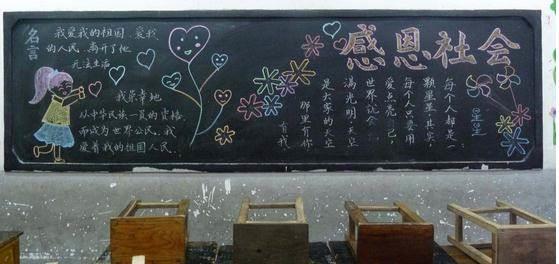 感恩社会
名言
我爱我的祖国，爱我
的人民，离开了他
无法生活
我荣幸地
从中华民族一员的资格
而成为世界公民。我
爱着我的祖国人民。
星星
每个人都是一
颗星星
每个人只要用
爱点亮自己，
世界就会
满光明，天空
是大家的天空
那里有你
有我